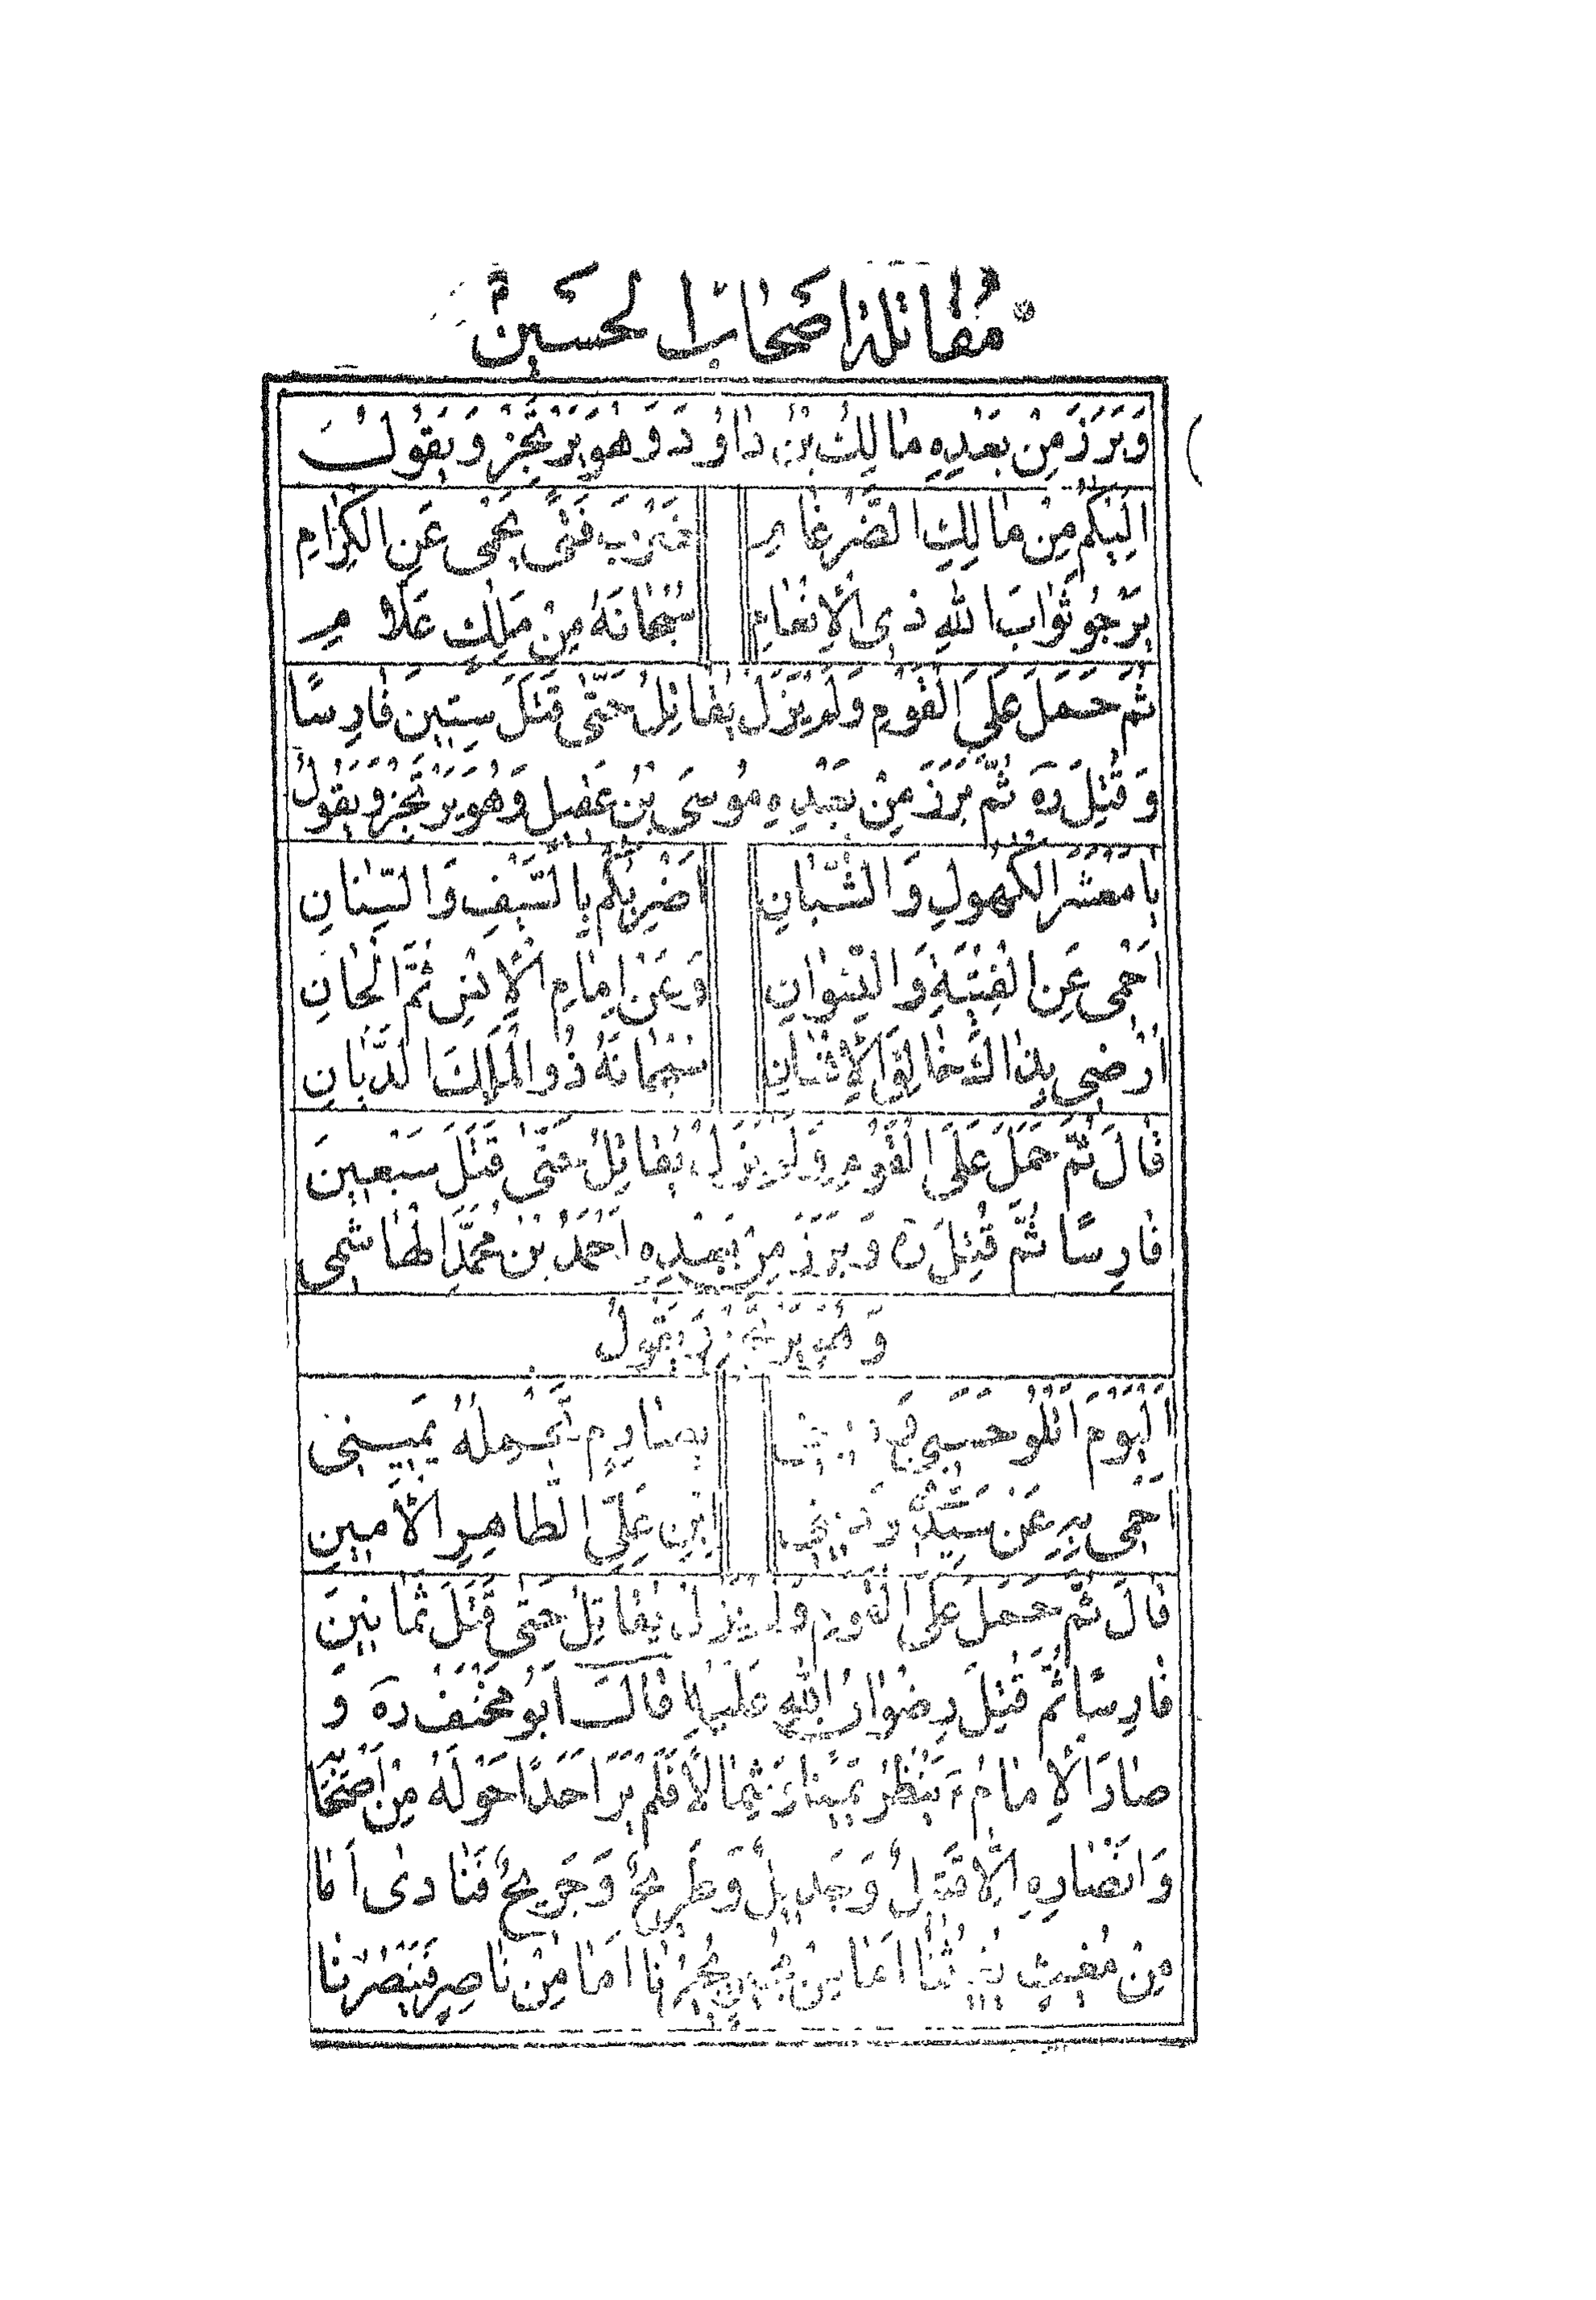 مُقَاتَلَةُ اَصْحَابِ الْحُسَيْنِ
وَبَرَزَ مِنْ بَعْدِهِ مَالِكُ بْنُ دَاوُدَ وَهُوَ يَرْتَجِزُ وَيَقُولُ
اِلَيْكُمْ مِنْ مَالِكِ الضَّرْغَامِ ضَرْبَ فَتًى يَحْمِى عَنِ الْكِرَامِ
يَرْجُو ثَوَابَ اللهِ ذِى الْاِنْعَامِ سُبْحَانَهُ مِنْ مَلِكٍ عَلَّامِ
ثُمَّ حَمَلَ عَلَى الْقَوْمِ وَلَمْ يَزَلْ يُقَاتِلُ حَتَّى قَتَلَ سِتِّينَ فَارِسًا
وَقُتِلَ رَه ثُمَّ بَرَزَ مِنْ بَعْدِهِ مُوسَى بْنُ عَقِيلٍ وَهُوَ يَرْتَجِزُ وَيَقُولُ
يَا مَعْشَرَ الْكُهُولِ وَالشُّبَّانِ اَضْرِبُكُمْ بِالسَّيْفِ وَالسِّنَانِ
اَحْمِى عَنِ الْفِتْيَةِ وَالنِّسْوَانِ وَعَنْ اِمَامِ الْاِنْسِ ثُمَّ الْجَانِ
اُرْضِى بِذَاكَ خَالِقَ الْاِنْسَانِ سُبْحَانَهُ ذُو الْمَلِكِ الدَّيَّانِ
قَالَ ثُمَّ حَمَلَ عَلَى الْقَوْمِ وَلَمْ يَزَلْ يُقَاتِلُ حَتَّى قَتَلَ سَبْعِينَ
فَارِسًا ثُمَّ قُتِلَ رَه وَبَرَزَ مِنْ بَعْدِهِ اَحْمَدُ بْنُ مُحَمَّدٍ الْهَاشِمِى
وَهُوَ يَرْتَجِزُ وَيَقُولُ
اَلْيَوْمَ اَتْلُو حَسَبِى بِصَارِمٍ تَحْمِلُهُ يَمِينِى
اَحْمِى بِهِ عَنْ سَيِّدِى اِبْنِ عَلِيٍّ الطَّاهِرِ الْاَمِينِ
قَالَ ثُمَّ حَمَلَ عَلَى الْقَوْمِ وَلَمْ يَزَلْ يُقَاتِلُ حَتَّى قَتَلَ ثَمَانِينَ
فَارِسًا ثُمَّ قُتِلَ رِضْوَانُ اللهِ عَلَيْهِ قَالَ اَبُو مِخْنَفٍ رَه وَ
صَارَ الْاِمَامُ ع يَنْظُرُ يَمِينًا وَ شِمَالًا فَلَمْ يَرَ اَحَدًا حَوْلَهُ مِنْ اَصْحَابِهِ
وَاَنْصَارِهِ اِلَّا قَتِيلٌ وَجَدِيلٌ وَطَرِيحٌ وَجَرِيحٌ فَنَادَى اَمَا
مِنْ مُغِيثٍ يُغِيثُنَا اَمَا مِنْ مُجِيرٍ يُجِيرُنَا اَمَا مِنْ نَاصِرٍ يَنْصُرُنَا